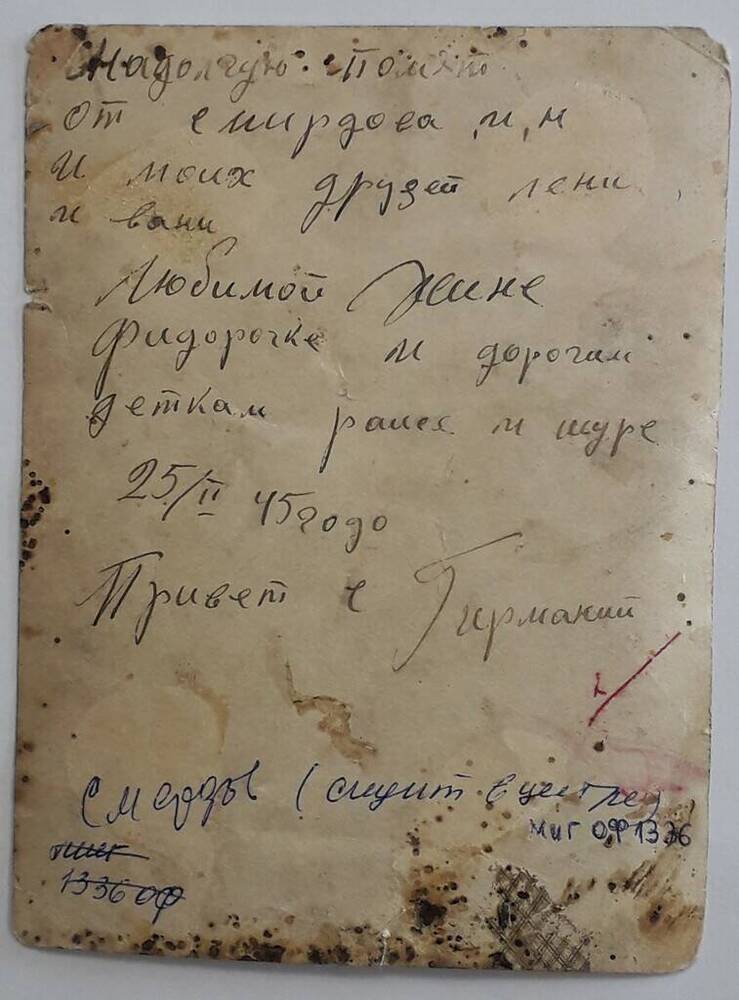 Надолгую помят
от смирдова и, н
и моих друзей лени,
и вани
Любимой жине
Фидорочке и дорогим
деткам раисе и шуре
25/II 45 годо
Привет с Гирмании
Смердов (сидит в центре)
МИГ ОФ 1336
1336 ОФ